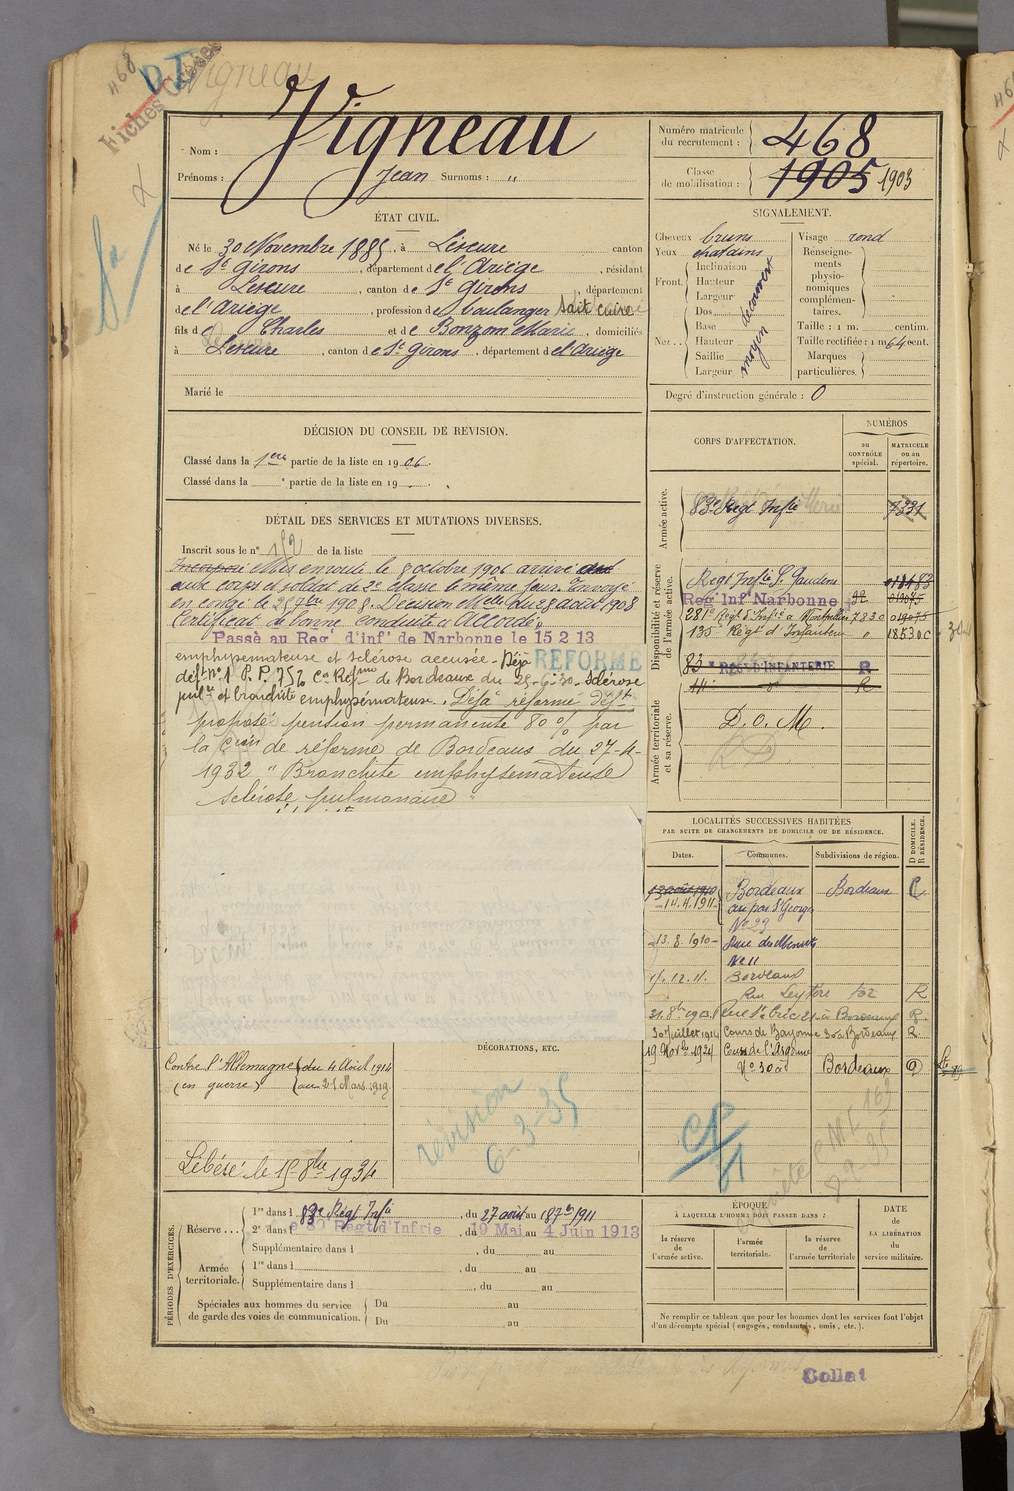 468
D I
Vigneau
Fiches Croisées
Nom : Vigneau
Prénoms : Jean Surnoms : "
Numéro matricule du recrutement : 468
Classe de mobilisation : 1905 1903
ÉTAT CIVIL.
Né le 30 Novembre 1885, à Lescure canton
de St Girons, département de l'Ariège, résidant
à Lescure, canton de St Girons, département
de l'Ariège, profession de boulanger Sait cuire
fils de Charles et de Bonzom Marie, domiciliés
à Lescure, canton de St Girons, département de l'Ariège
Marié le
SIGNALEMENT.
Cheveux bruns
Yeux chatains
Front. Inclinaison
Hauteur
Largeur
découvert
Nez.. Dos
Base
Hauteur
Saillie
Largeur
moyen
Visage rond
Renseignements physionomiques complémentaires.
Taille : 1 m. centim.
Taille rectifiée : 1 m 64 cent.
Marques particulières.
Degré d'instruction générale : 0
DÉCISION DU CONSEIL DE REVISION.
Classé dans la 1ère partie de la liste en 1906.
Classé dans la e partie de la liste en 19 .
DÉTAIL DES SERVICES ET MUTATIONS DIVERSES.
Inscrit sous le n° 152 de la liste
Incorporé Mis en route le 8 octobre 1906 arrivé
aux corps et soldat de 2e classe le même jour. Envoyé
en congé le 25 7bre 1908. Décision Mlle du 28 août 1908
Certificat de bonne conduite "Accordé"
Passé au Reg. d'inf. de Narbonne le 15 2 13
REFORMÉ
emphysemateuse et sclérose accusée - Déjà
déft n° 1 P.P. 752 Cn Réfme de Bordeaux du 25-6-30 - sclérose
pulre et bronchite emphysémateuse. Déjà réformé déft
proposé pension permanente 80 % par
la Cion de réforme de Bordeaux du 27-4-
1932 "Bronchite emphysemateuse
sclérose pulmonaire"
CORPS D'AFFECTATION.
NUMÉROS
au CONTRÔLE spécial.
MATRICULE ou au répertoire.
Armée active.
83e Régt Infie 7331
Disponibilité et réserve de l'armée active.
Régt Infie St Gaudens 018683
Reg Inf Narbonne 019075
281e Régt d'Infie à Montpellier 7830 019075
135 Régt d'Infanterie " 18530C
83 e REGT D'INFANTERIE R
Armée territoriale et sa réserve.
D.O.M.
LOCALITÉS SUCCESSIVES HABITÉES
PAR SUITE DE CHANGEMENTS DE DOMICILE OU DE RÉSIDENCE.
Dates. Communes. Subdivisions de région. D DOMICILE. R RÉSIDENCE.
13 août 1910 Bordeaux Bordeaux R
14.4.1911
No 23
13.8.1910
No 11
15.12.11. Bordeaux
Rue Leyteire 102 R
Bordeaux R
30 Juillet 1914 Cours de Bayonne 30 à Bordeaux R
19 Novbre 1924 Cours de l'Argonne
No 30 Bordeaux
DÉCORATIONS, ETC.
Contre l'Allemagne du 4 Août 1914
(en guerre) au 25 Mars 1919
révision
6-3-35
Libéré le 15 8bre 1934
PÉRIODES D'EXERCICES.
Réserve... 1re dans l 83e Régt Infie, du 27 août au 18 7bre 1911
2e dans l e 80 Régt d'Infrie, du 19 Mai au 4 Juin 1913
Supplémentaire dans l , du au
Armée territoriale. 1re dans l , du au
Supplémentaire dans l , du au
Spéciales aux hommes du service de garde des voies de communication. Du au
Du au
ÉPOQUE
À LAQUELLE L'HOMME DOIT PASSER DANS :
la réserve de l'armée active.
l'armée territoriale.
la réserve de l'armée territoriale
DATE de LA LIBÉRATION du service militaire.
Ne remplir ce tableau que pour les hommes dont les services font l'objet
d'un décompte spécial (engagés, condamnés, omis, etc.).
Collat